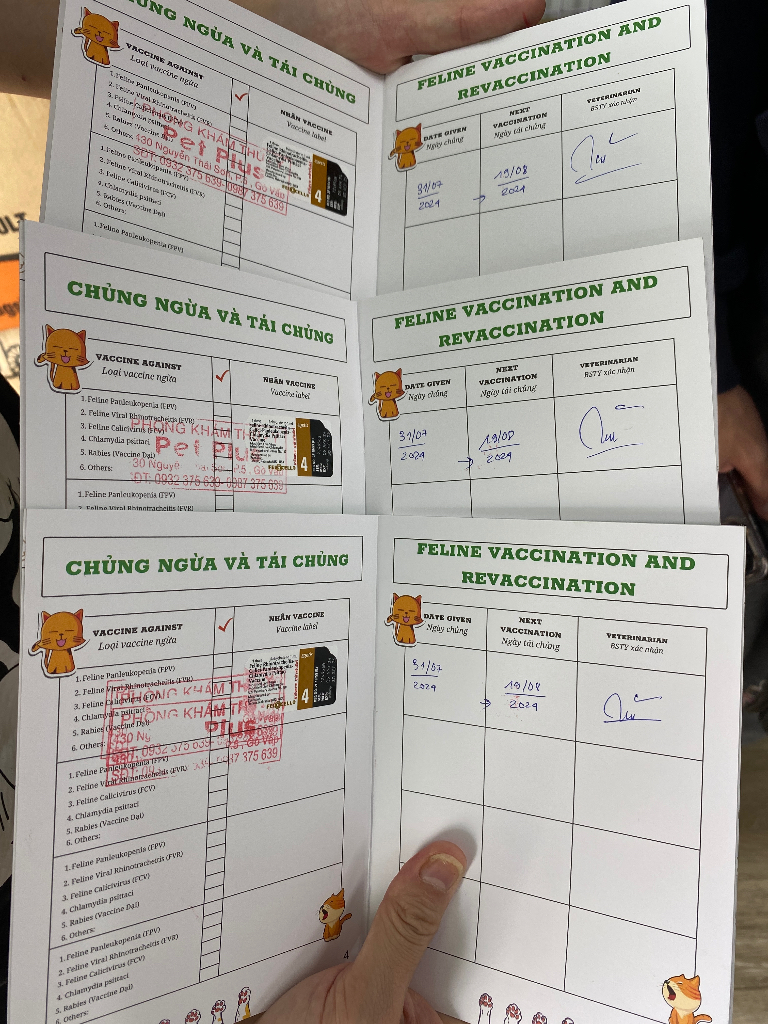 CHỦNG NGỪA VÀ TÁI CHỦNG
VACCINE AGAINST
Loại vaccine ngừa
NHÃN VACCINE
Vaccine label
1. Feline Panleukopenia (FPV)
2. Feline Viral Rhinotracheitis (FVR)
3. Feline Calicivirus (FCV)
4. Chlamydia psittaci
5. Rabies (Vaccine Dại)
6. Others:
PHÒNG KHÁM THÚ
Pet Plus
430 Nguyễn Thái Sơn, P.5, Gò Vấp
SĐT: 0932 375 639- 0987 375 639
4
1. Feline Panleukopenia (FPV)
2. Feline Viral Rhinotracheitis (FVR)
3. Feline Calicivirus (FCV)
4. Chlamydia psittaci
5. Rabies (Vaccine Dại)
6. Others:
1. Feline Panleukopenia (FPV)
FELINE VACCINATION AND
REVACCINATION
DATE GIVEN
Ngày chủng
NEXT
VACCINATION
Ngày tái chủng
VETERINARIAN
BSTY xác nhận
31/07
2024
→ 19/08
2024
CHỦNG NGỪA VÀ TÁI CHỦNG
VACCINE AGAINST
Loại vaccine ngừa
NHÃN VACCINE
Vaccine label
1. Feline Panleukopenia (FPV)
2. Feline Viral Rhinotracheitis (FVR)
3. Feline Calicivirus (FCV)
4. Chlamydia psittaci
5. Rabies (Vaccine Dại)
6. Others:
PHÒNG KHÁM TH
Pet Plus
30 Nguyễ Thái Sơn, P.5, Gò Vấp
ĐT: 0932 375 639- 0987 375 639
FELOCELL
4
1. Feline Panleukopenia (FPV)
2. Feline Viral Rhinotracheitis (FVR)
FELINE VACCINATION AND
REVACCINATION
DATE GIVEN
Ngày chủng
NEXT
VACCINATION
Ngày tái chủng
VETERINARIAN
BSTY xác nhận
31/07
2024
→ 19/08
2024
CHỦNG NGỪA VÀ TÁI CHỦNG
VACCINE AGAINST
Loại vaccine ngừa
NHÃN VACCINE
Vaccine label
1. Feline Panleukopenia (FPV)
2. Feline Viral Rhinotracheitis (FVR)
3. Feline Calicivirus (FCV)
4. Chlamydia psittaci
5. Rabies (Vaccine Dại)
6. Others:
PHÒNG KHÁM TH
PHÒNG KHÁM T
Plus
0932 375 639
4
1. Feline Panleukopenia (FPV)
2. Feline Viral Rhinotracheitis (FVR)
3. Feline Calicivirus (FCV)
4. Chlamydia psittaci
5. Rabies (Vaccine Dại)
6. Others:
1. Feline Panleukopenia (FPV)
2. Feline Viral Rhinotracheitis (FVR)
3. Feline Calicivirus (FCV)
4. Chlamydia psittaci
5. Rabies (Vaccine Dại)
6. Others:
1. Feline Panleukopenia (FPV)
2. Feline Viral Rhinotracheitis (FVR)
3. Feline Calicivirus (FCV)
4. Chlamydia psittaci
5. Rabies (Vaccine Dại)
6. Others:
4
FELINE VACCINATION AND
REVACCINATION
DATE GIVEN
Ngày chủng
NEXT
VACCINATION
Ngày tái chủng
VETERINARIAN
BSTY xác nhận
31/07
2024
→ 19/08
2024